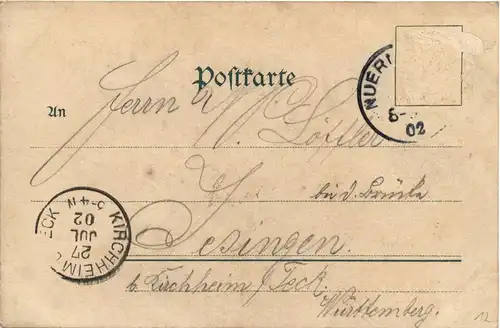 Postkarte
NUER
8-
02
An
Herrn W. Löffler
in
Jesingen.
bei d. Brücke
b. Kirchheim / Teck.
Württemberg.
KIRCHHEIM U. TECK
27
JUL
02
3-4 N
12